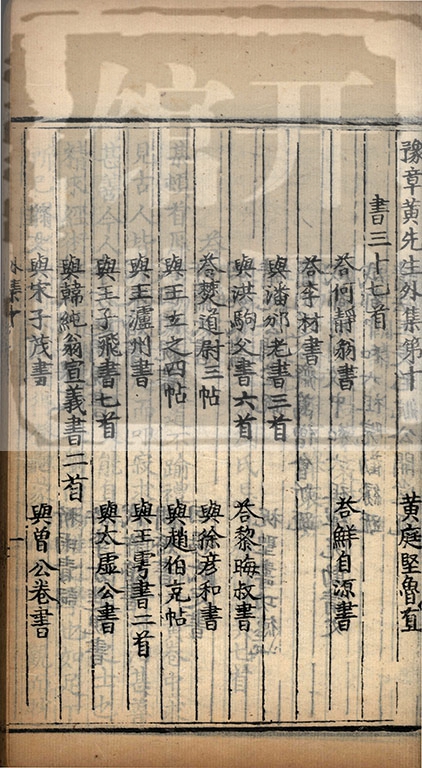 豫章黃先生外集第十
黃庭堅魯直
書三十七首
荅何靜翁書
荅鮮自源書
荅李材書
與潘邠老書三首
與洪駒父書六首
荅黎晦叔書
荅僰道尉三帖
與徐彥和書
與王立之四帖
與趙伯充帖
與王瀘州書
與王雩書二首
與王子飛書七首
與太虛公書
與韓純翁宣義書二首
與宋子茂書
與曾公卷書
外集十
一